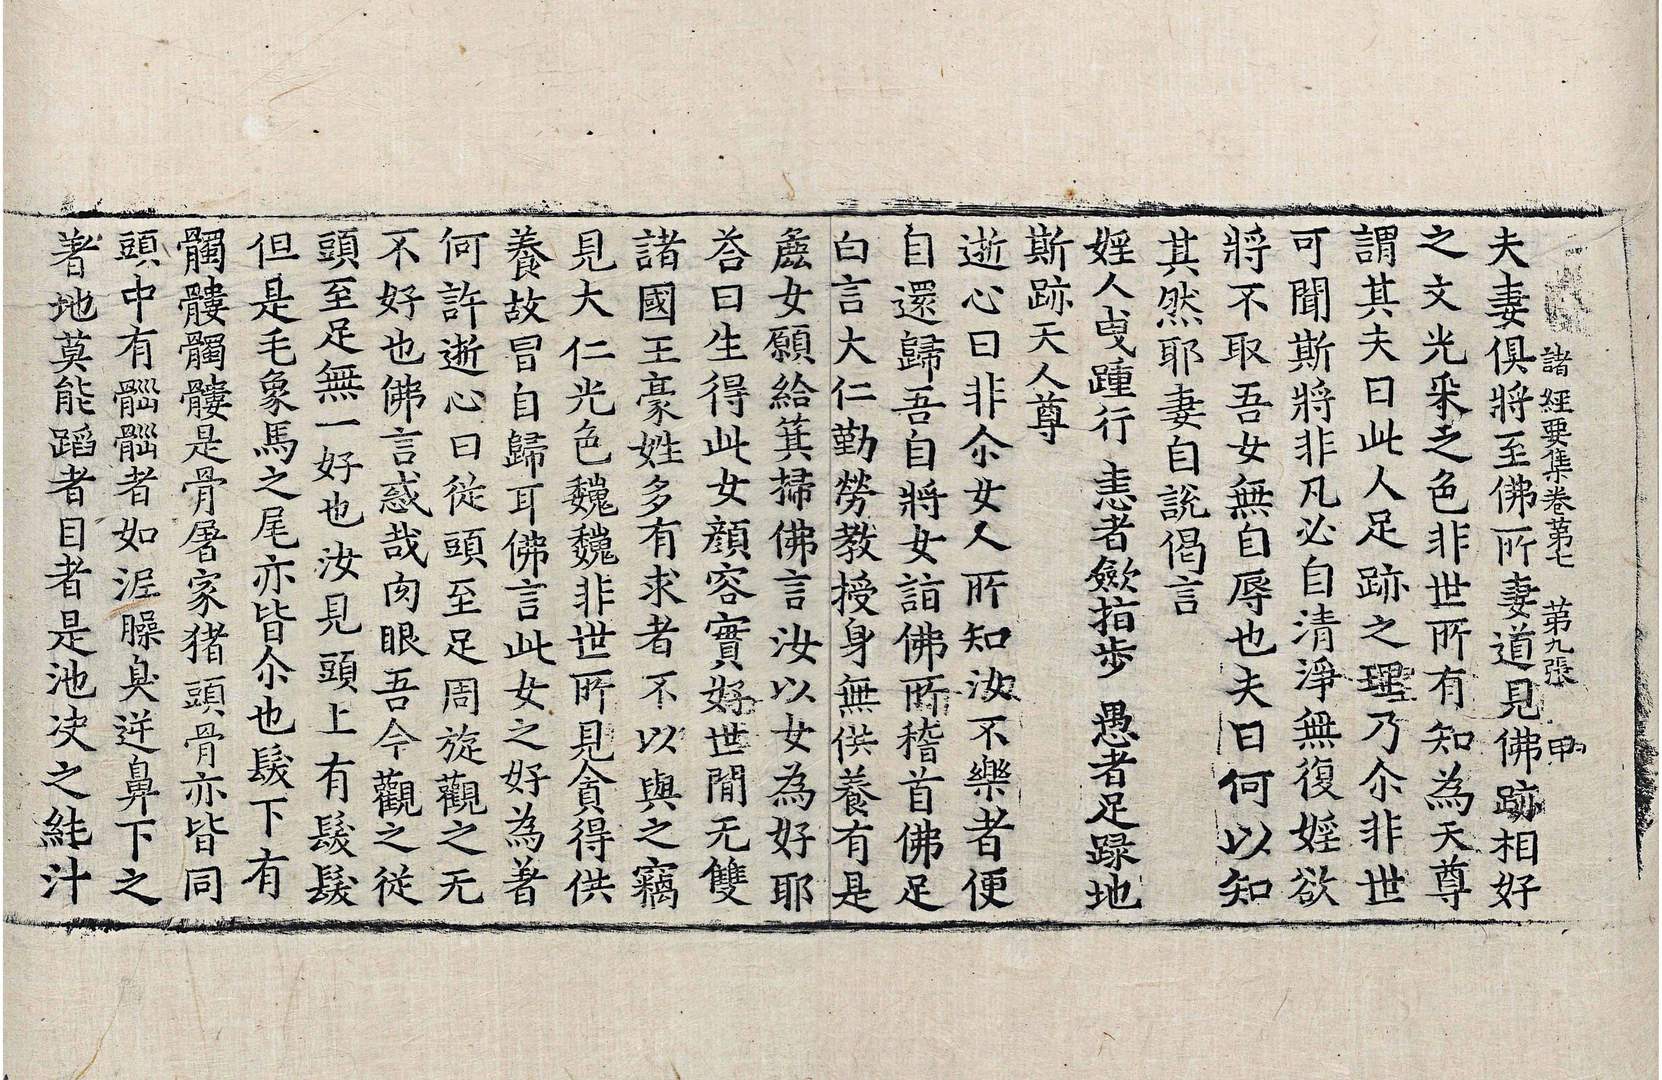 諸經要集卷第七 第九張 甲
夫妻俱將至佛所妻道見佛跡相好
之文光采之色非世所有知為天尊
謂其夫曰此人足跡之理乃尒非世
可聞斯將非凡必自清淨無復婬欲
將不取吾女無自辱也夫曰何以知
其然耶妻自說偈言
婬人曳踵行 恚者歛指步 愚者足踧地
斯跡天人尊
逝心曰非尒女人所知汝不樂者便
自還歸吾自將女詣佛所稽首佛足
白言大仁勤勞教授身無供養有是
麁女願給箕掃佛言汝以女為好耶
荅曰生得此女顏容實好世閒无雙
諸國王豪姓多有求者不以與之竊
見大仁光色巍巍非世所見貪得供
養故冒自歸耳佛言此女之好為著
何許逝心曰從頭至足周旋觀之无
不好也佛言惑哉肉眼吾今觀之從
頭至足無一好也汝見頭上有髮髮
但是毛象馬之尾亦皆尒也髮下有
髑髏髑髏是骨屠家猪頭骨亦皆同
頭中有䯝䯝者如泥臊臭逆鼻下之
著地莫能蹈者目者是池决之純汁